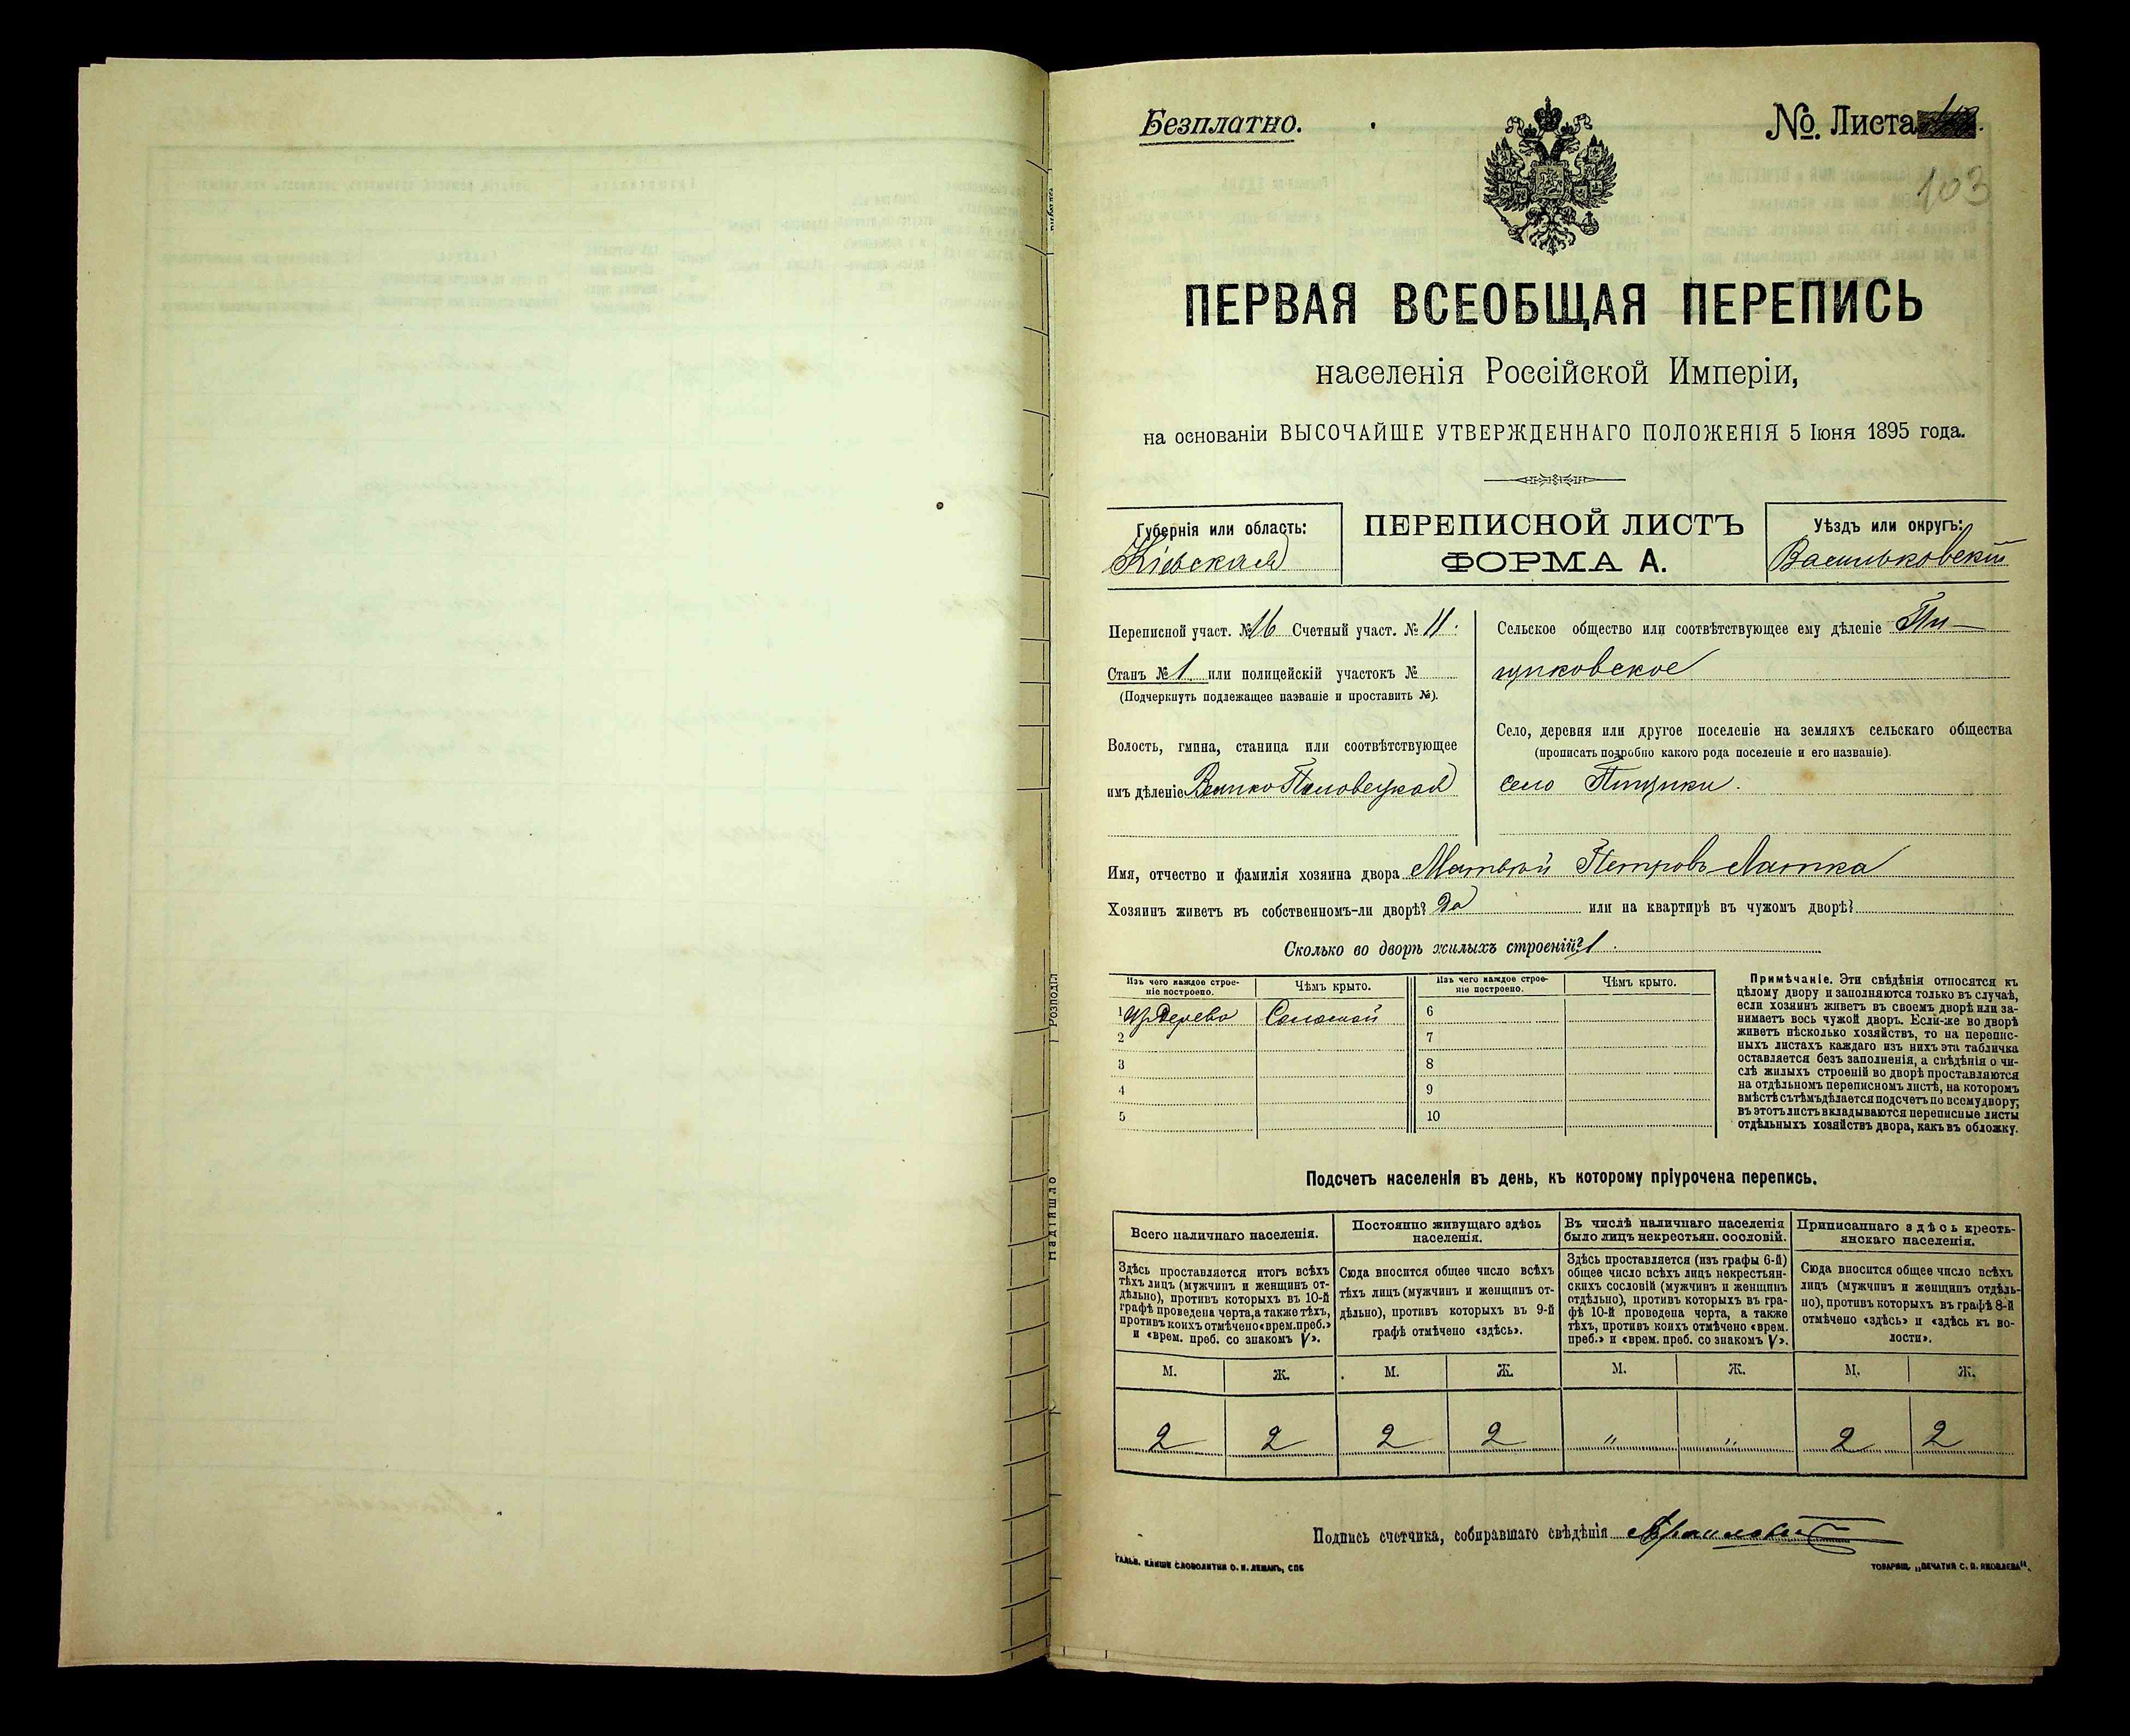 Безплатно.
№ Листа
103
ПЕРВАЯ ВСЕОБЩАЯ ПЕРЕПИСЬ
населенія Россійской Имперіи,
на основаніи ВЫСОЧАЙШЕ УТВЕРЖДЕННАГО ПОЛОЖЕНІЯ 5 Іюня 1895 года.
Губернія или область:
Кіевская
ПЕРЕПИСНОЙ ЛИСТЪ
ФОРМА А.
Уѣздъ или округъ:
Васильковскій
Переписной участ. № 16 Счетный участ. № 11.
Станъ № 1 или полицейскій участокъ №
(Подчеркнуть подлежащее названіе и проставить №).
Волость, гмина, станица или соотвѣтствующее
имъ дѣленіе Велико Половецкая
Сельское общество или соотвѣтствующее ему дѣленіе Пи-
щиковское
Село, деревня или другое поселеніе на земляхъ сельскаго общества
(прописать подробно какого рода поселеніе и его названіе).
село Пищики.
Имя, отчество и фамилія хозяина двора Матвѣй Петровъ Латка
Хозяинъ живетъ въ собственномъ-ли дворѣ? Да или на квартирѣ въ чужомъ дворѣ?
Сколько во дворѣ жилыхъ строеній? 1.
Изъ чего каждое строе-
ніе построено.
Чѣмъ крыто.
Изъ чего каждое строе-
ніе построено.
Чѣмъ крыто.
1 Из Дерева Соломой 6
2 7
3 8
4 9
5 10
Примѣчаніе. Эти свѣдѣнія относятся къ
цѣлому двору и заполняются только въ случаѣ,
если хозяинъ живетъ въ своемъ дворѣ или за-
нимаетъ весь чужой дворъ. Если-же во дворѣ
живетъ нѣсколько хозяйствъ, то на перепис-
ныхъ листахъ каждаго изъ нихъ эта табличка
оставляется безъ заполненія, а свѣдѣнія о чи-
слѣ жилыхъ строеній во дворѣ проставляются
на отдѣльномъ переписномъ листѣ, на которомъ
вмѣстѣ съ тѣмъ дѣлается подсчетъ по всему двору;
въ этотъ листъ вкладываются переписные листы
отдѣльныхъ хозяйствъ двора, какъ въ обложку.
Подсчетъ населенія въ день, къ которому пріурочена перепись.
Всего наличнаго населенія.
Здѣсь проставляется итогъ всѣхъ
тѣхъ лицъ (мужчинъ и женщинъ от-
дѣльно), противъ которыхъ въ 10-й
графѣ проведена черта, а также тѣхъ,
противъ коихъ отмѣчено «врем. преб.»
и «врем. преб. со знакомъ V».
Постоянно живущаго здѣсь
населенія.
Сюда вносится общее число всѣхъ
тѣхъ лицъ (мужчинъ и женщинъ от-
дѣльно), противъ которыхъ въ 9-й
графѣ отмѣчено «здѣсь».
Въ числѣ наличнаго населенія
было лицъ некрестьян. сословій.
Здѣсь проставляется (изъ графы 6-й)
общее число всѣхъ лицъ некрестьян-
скихъ сословій (мужчинъ и женщинъ
отдѣльно), противъ которыхъ въ гра-
фѣ 10-й проведена черта, а также
тѣхъ, противъ коихъ отмѣчено «врем.
преб.» и «врем. преб. со знакомъ V».
Приписаннаго здѣсь кресть-
янскаго населенія.
Сюда вносится общее число всѣхъ
лицъ (мужчинъ и женщинъ отдѣль-
но), противъ которыхъ въ графѣ 8-й
отмѣчено «здѣсь» и «здѣсь къ во-
лости».
М. Ж. М. Ж. М. Ж. М. Ж.
2 2 2 2 " " 2 2
Подпись счетчика, собиравшаго свѣдѣнія
ГАЛЬВ. КЛИШЕ СЛОВОЛИТНИ О. И. ЛЕМАНЪ, СПБ
ТОВАРИЩ. „ПЕЧАТНЯ С. П. ЯКОВЛЕВА“.
Розподіл
Надійшло